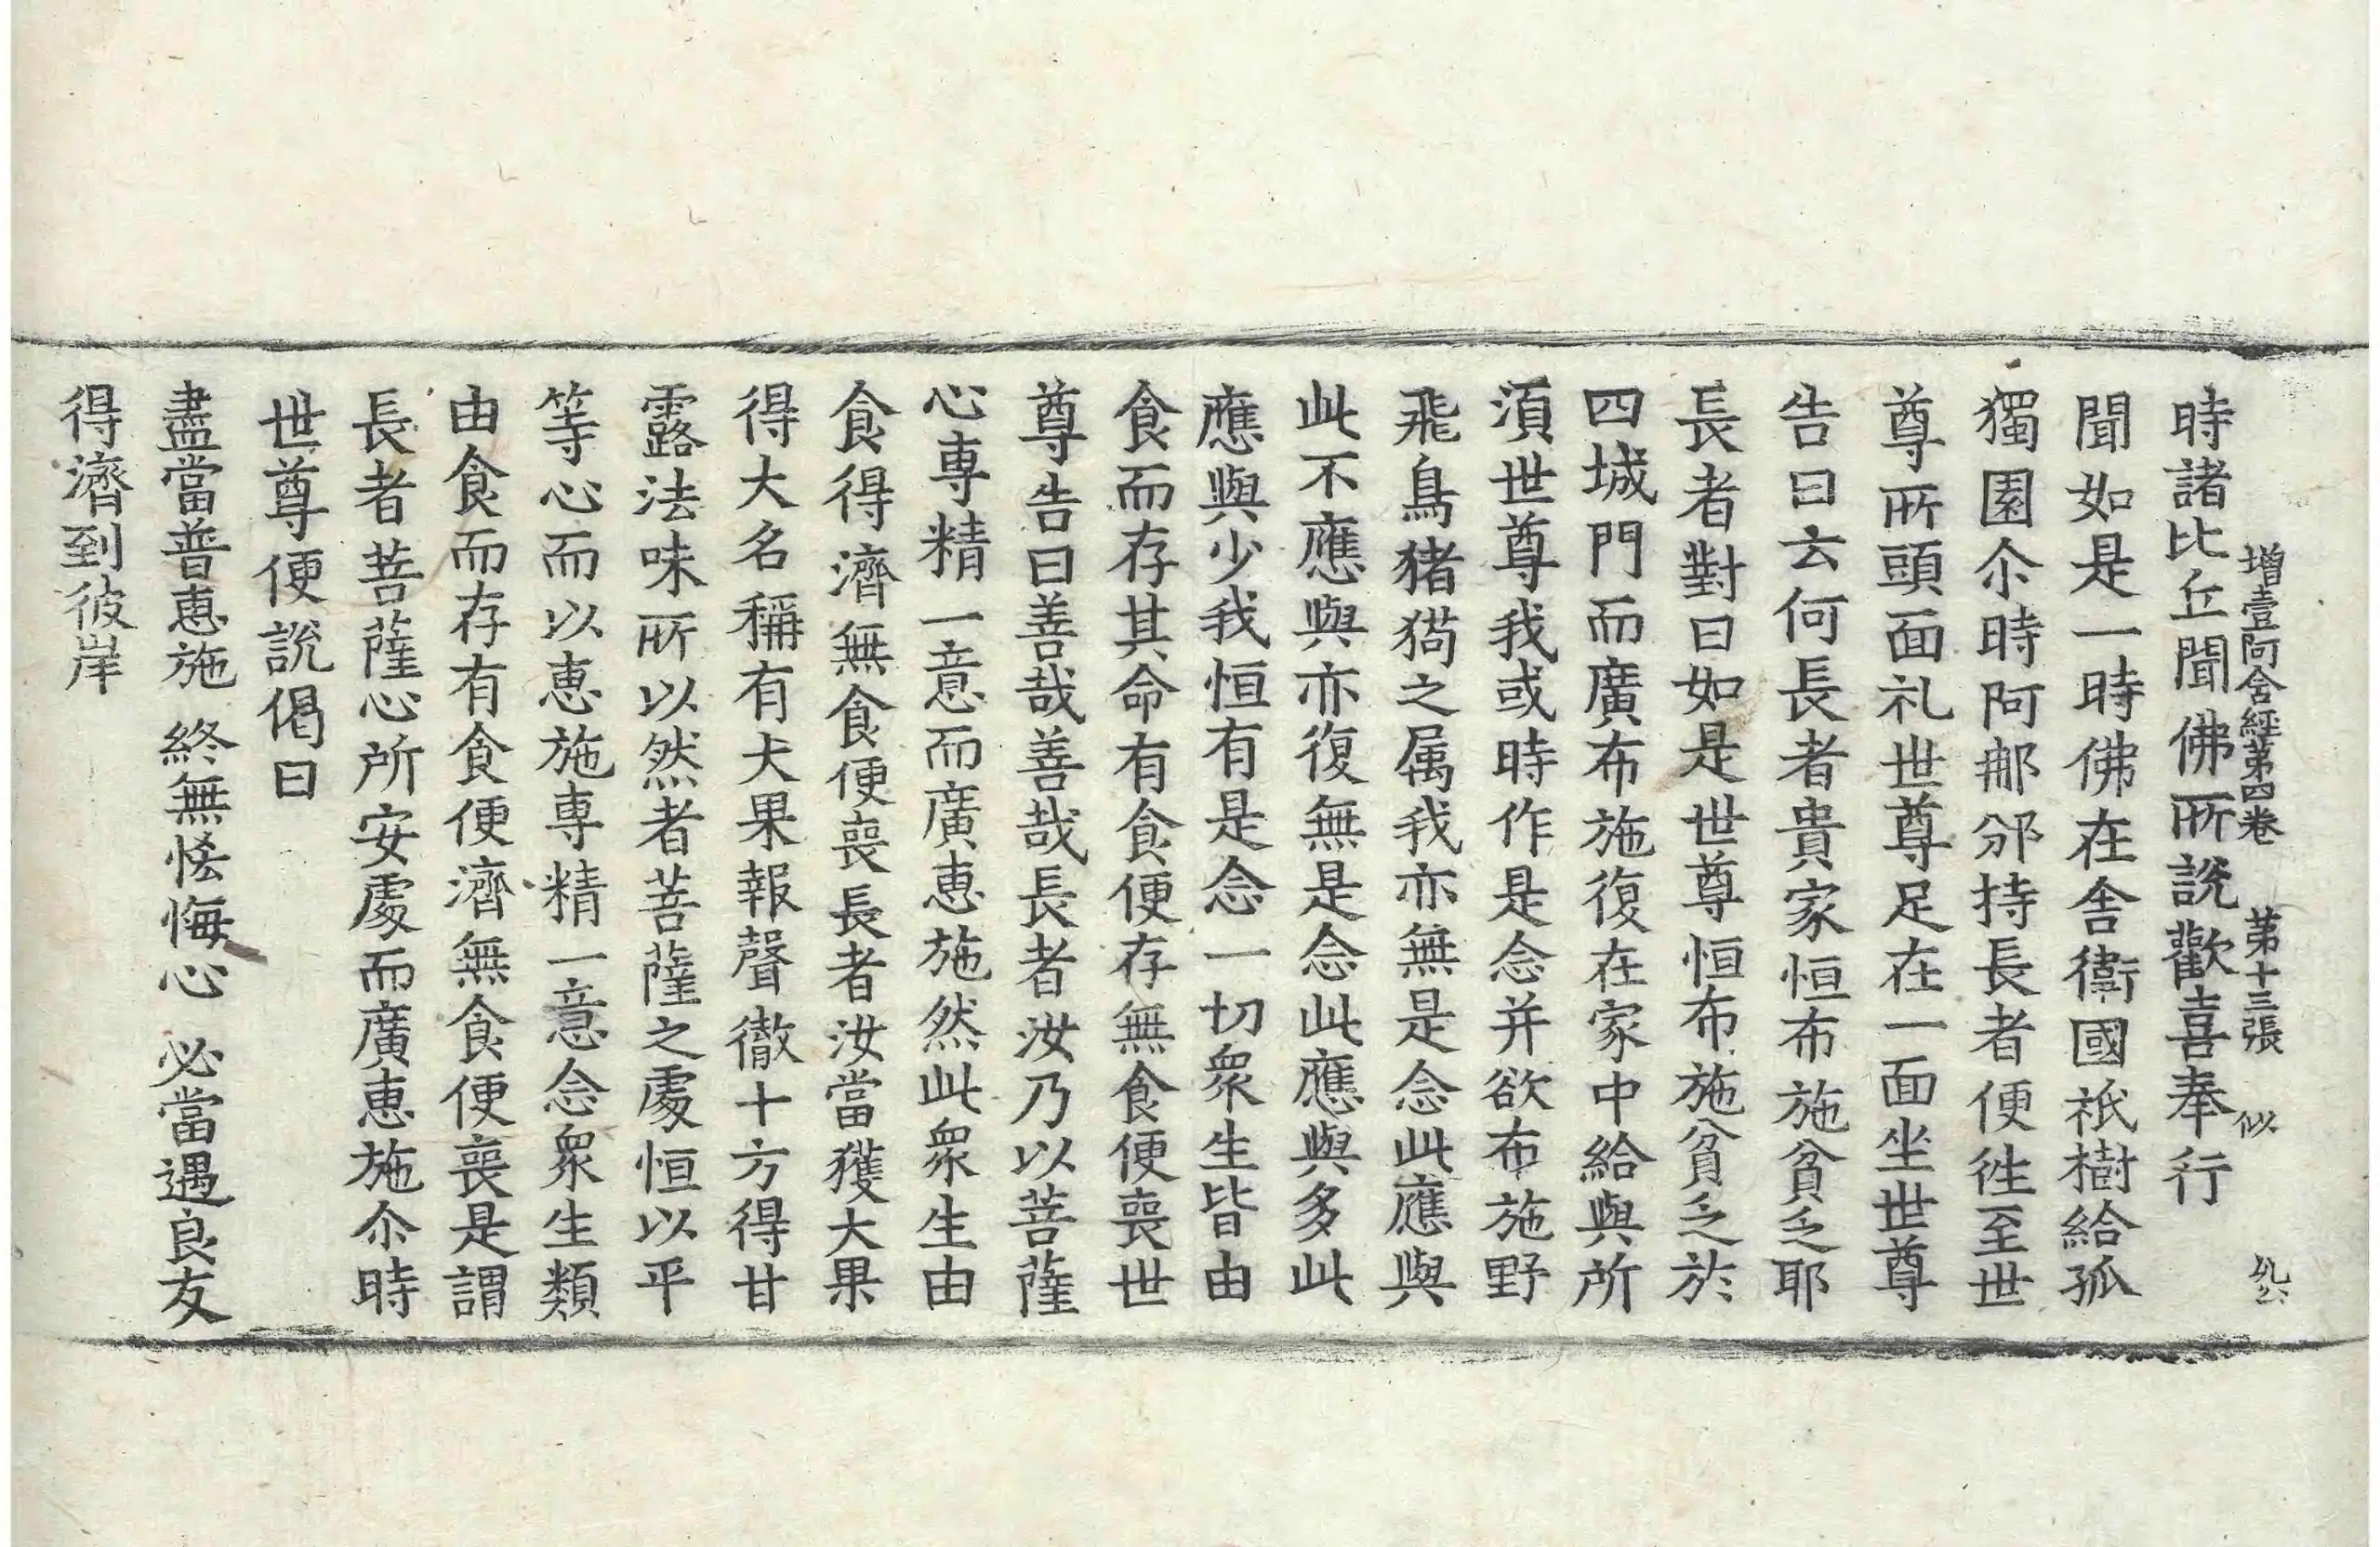 增壹阿含經第四卷 第十三張 似
時諸比丘聞佛所說歡喜奉行
聞如是一時佛在舍衛國祇樹給孤
獨園尒時阿那邠持長者便往至世
尊所頭面礼世尊足在一面坐世尊
告曰云何長者貴家恒布施貧乏耶
長者對曰如是世尊恒布施貧乏於
四城門而廣布施復在家中給與所
須世尊我或時作是念并欲布施野
飛鳥猪猫之属我亦無是念此應與
此不應與亦復無是念此應與多此
應與少我恒有是念一切衆生皆由
食而存其命有食便存無食便喪世
尊告曰善哉善哉長者汝乃以菩薩
心專精一意而廣惠施然此衆生由
食得濟無食便喪長者汝當獲大果
得大名稱有大果報聲徹十方得甘
露法味所以然者菩薩之處恒以平
等心而以惠施專精一意念衆生類
由食而存有食便濟無食便喪是謂
長者菩薩心所安處而廣惠施尒時
世尊便說偈曰
盡當普惠施 終無悋悔心 必當遇良友
得濟到彼岸